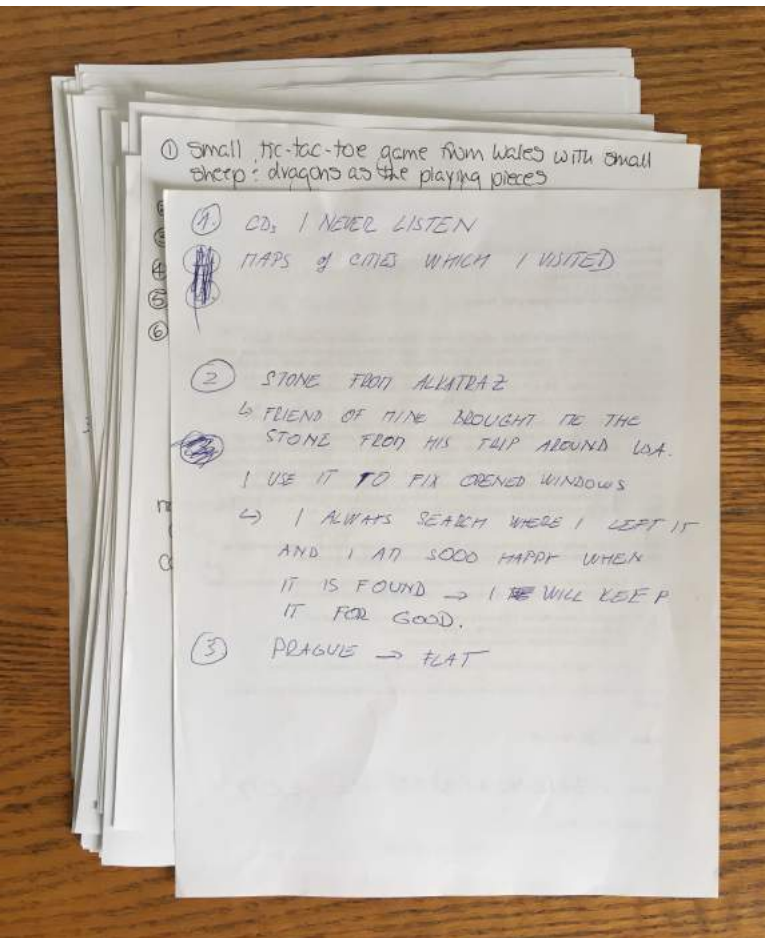 ① Small tic-tac-toe game from Wales with small
sheep : dragons as the playing pieces
④
⑤
⑥
①. CDs I NEVER LISTEN
MAPS of CITIES WHICH I VISITED
② STONE FROM ALKATRAZ
↳ FRIEND OF MINE BROUGHT ME THE
STONE FROM HIS TRIP AROUND USA.
I USE IT TO FIX OPENED WINDOWS
↳ I ALWAYS SEARCH WHERE I LEFT IT
AND I AM SOOO HAPPY WHEN
IT IS FOUND → I WILL KEEP
IT FOR GOOD.
③ PRAGUE → FLAT